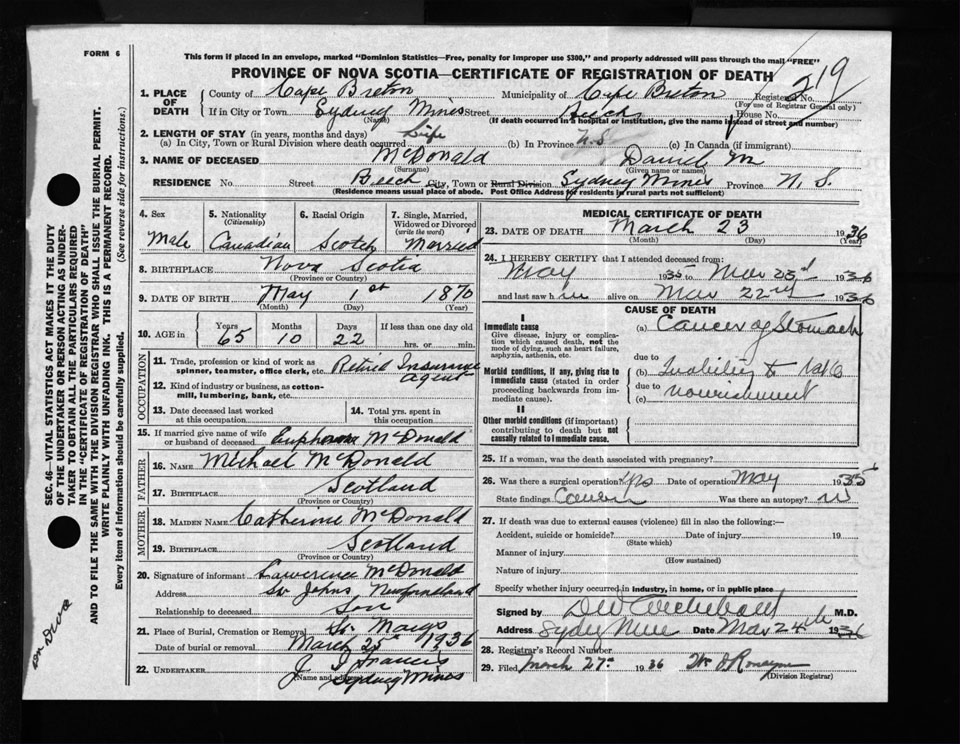 FORM 6
This form if placed in an envelope, marked "Dominion Statistics—Free, penalty for improper use $300," and properly addressed will pass through the mail "FREE"
PROVINCE OF NOVA SCOTIA—CERTIFICATE OF REGISTRATION OF DEATH
219
1. PLACE OF DEATH
County of Cape Breton Municipality of Cape Breton Registered No.
(For use of Registrar General only)
If in City or Town Sydney Mines Street Beech House No.
(Name) (If death occurred in a hospital or institution, give the name instead of street and number)
2. LENGTH OF STAY (in years, months and days)
(a) In City, Town or Rural Division where death occurred Life (b) In Province N.S. (c) In Canada (if immigrant)
3. NAME OF DECEASED McDonald Daniel M
(Surname) (Given name or names)
RESIDENCE No. Street Beech City, Town or Rural Division Sydney Mines Province N. S.
(Residence means usual place of abode. Post Office Address for residents in rural parts not sufficient)
4. Sex Male
5. Nationality (Citizenship) Canadian
6. Racial Origin Scotch
7. Single, Married, Widowed or Divorced (write the word) Married
8. BIRTHPLACE Nova Scotia
(Province or Country)
9. DATE OF BIRTH May 1st 1870
(Month) (Day) (Year)
10. AGE in Years 65 Months 10 Days 22 If less than one day old hrs. or min.
OCCUPATION
11. Trade, profession or kind of work as spinner, teamster, office clerk, etc. Retired Insurance agent
12. Kind of industry or business, as cotton-mill, lumbering, bank, etc.
13. Date deceased last worked at this occupation
14. Total yrs. spent in this occupation
15. If married give name of wife or husband of deceased McDonald
FATHER
16. NAME Michael McDonald
17. BIRTHPLACE Scotland
(Province or Country)
MOTHER
18. MAIDEN NAME Catherine McDonald
19. BIRTHPLACE Scotland
(Province or Country)
20. Signature of informant Lawerence McDonald
Address St Johns Newfoundland
Relationship to deceased Son
21. Place of Burial, Cremation or Removal
Date of burial or removal March 25th 1936
22. UNDERTAKER J. J. Francis
(Name and address) Sydney Mines
MEDICAL CERTIFICATE OF DEATH
23. DATE OF DEATH March 23 1936
(Month) (Day) (Year)
24. I HEREBY CERTIFY that I attended deceased from:
May 1935 to Mar 23rd 1936
and last saw him alive on Mar 22nd 1936
CAUSE OF DEATH
I
Immediate cause
Give disease, injury or complication which caused death, not the mode of dying, such as heart failure, asphyxia, asthenia, etc.
(a) Cancer of Stomach
due to
Morbid conditions, if any, giving rise to immediate cause (stated in order proceeding backwards from immediate cause).
(b) Inability to take
due to
(c) nourishment
II
Other morbid conditions (if important) contributing to death but not causally related to immediate cause.
25. If a woman, was the death associated with pregnancy?
26. Was there a surgical operation? Yes Date of operation May 1935
State findings Cancer Was there an autopsy?
27. If death was due to external causes (violence) fill in also the following:—
Accident, suicide or homicide? Date of injury 19
(State which)
Manner of injury
(How sustained)
Nature of injury
Specify whether injury occurred in industry, in home, or in public place
Signed by M.D.
Address Sydney Mines Date Mar 24th 1936
28. Registrar's Record Number
29. Filed March 27th 1936
(Division Registrar)
SEC. 46—VITAL STATISTICS ACT MAKES IT THE DUTY OF THE UNDERTAKER OR PERSON ACTING AS UNDERTAKER TO OBTAIN ALL THE PARTICULARS REQUIRED IN THE "CERTIFICATE OF REGISTRATION OF DEATH"
AND TO FILE THE SAME WITH THE DIVISION REGISTRAR WHO SHALL ISSUE THE BURIAL PERMIT.
WRITE PLAINLY WITH UNFADING INK. THIS IS A PERMANENT RECORD.
Every item of information should be carefully supplied. (See reverse side for instructions.)